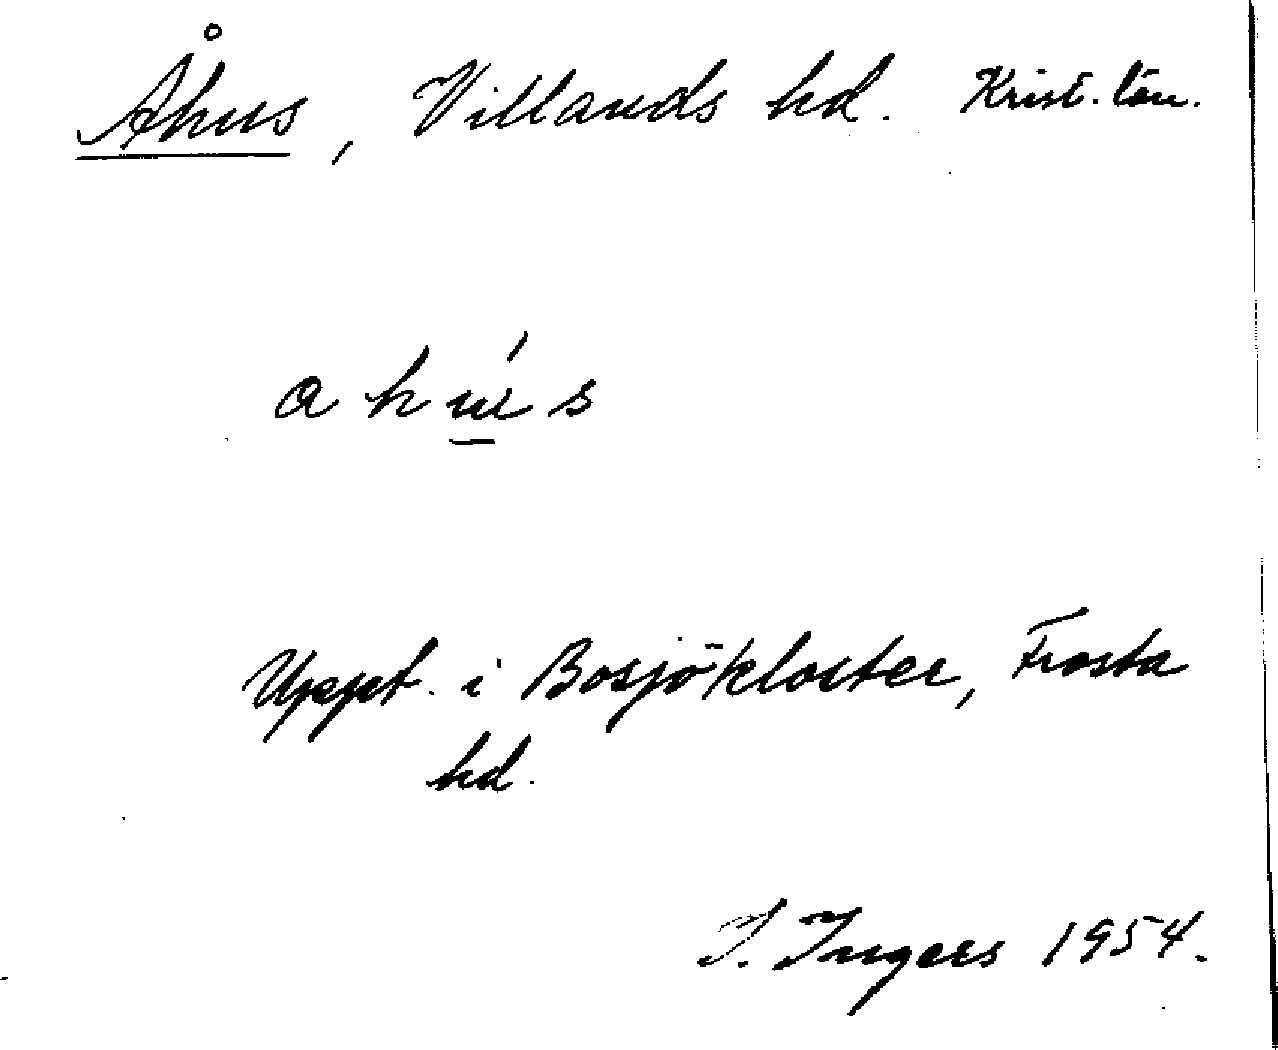 Åhus, Villands hd. Krist. län.
a h ú s
Uppt. i Bosjökloster, Frosta
hd.
I. Ingers 1954.